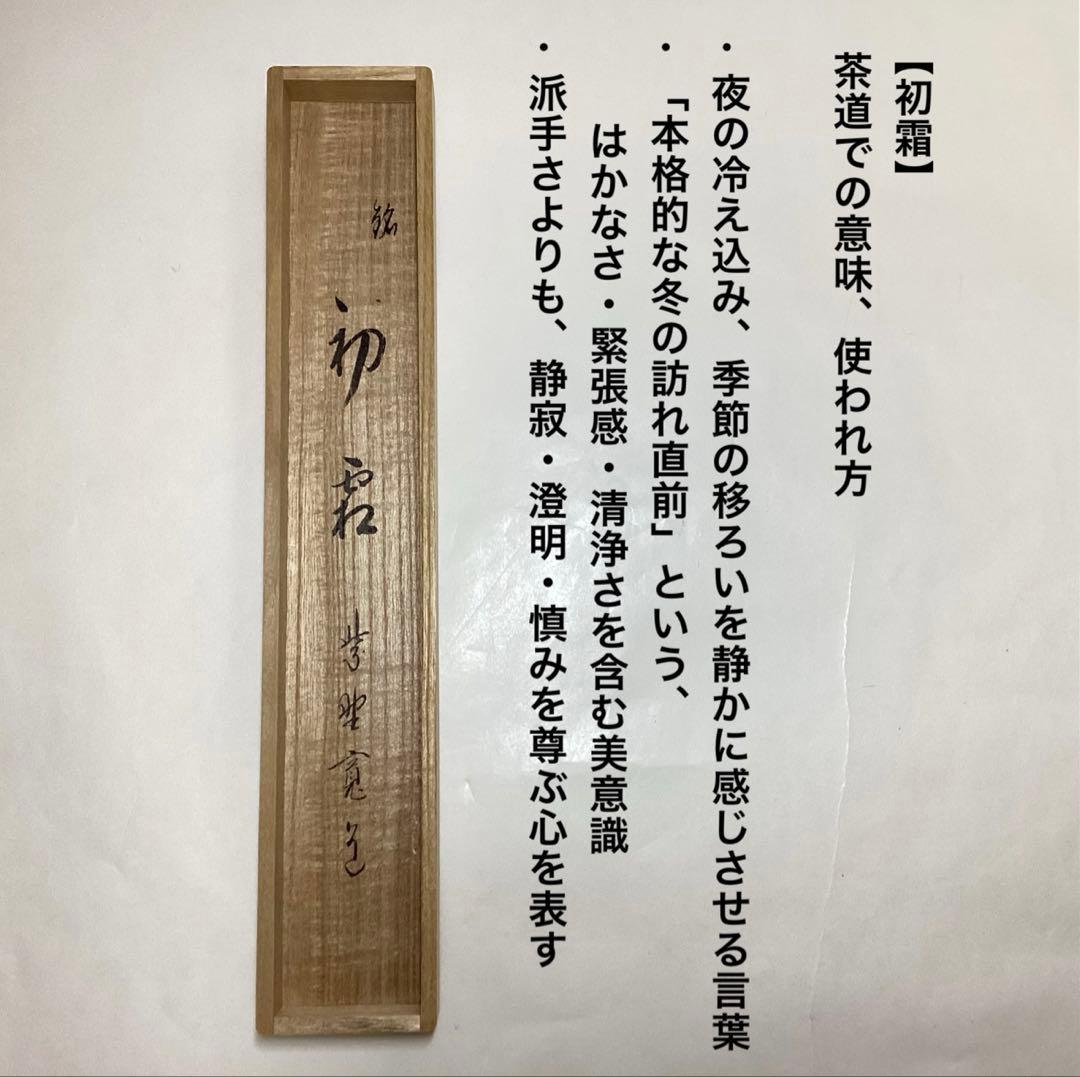 【初霜】
茶道での意味、使われ方
・夜の冷え込み、季節の移ろいを静かに感じさせる言葉
・「本格的な冬の訪れ直前」という、
はかなさ・緊張感・清浄さを含む美意識
・派手さよりも、静寂・澄明・慎みを尊ぶ心を表す
銘
初霜
紫野寛道